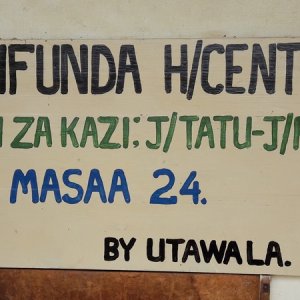 IFUNDA H/CENT
I ZA KAZI; J/TATU-J/
MASAA 24.
BY UTAWALA.